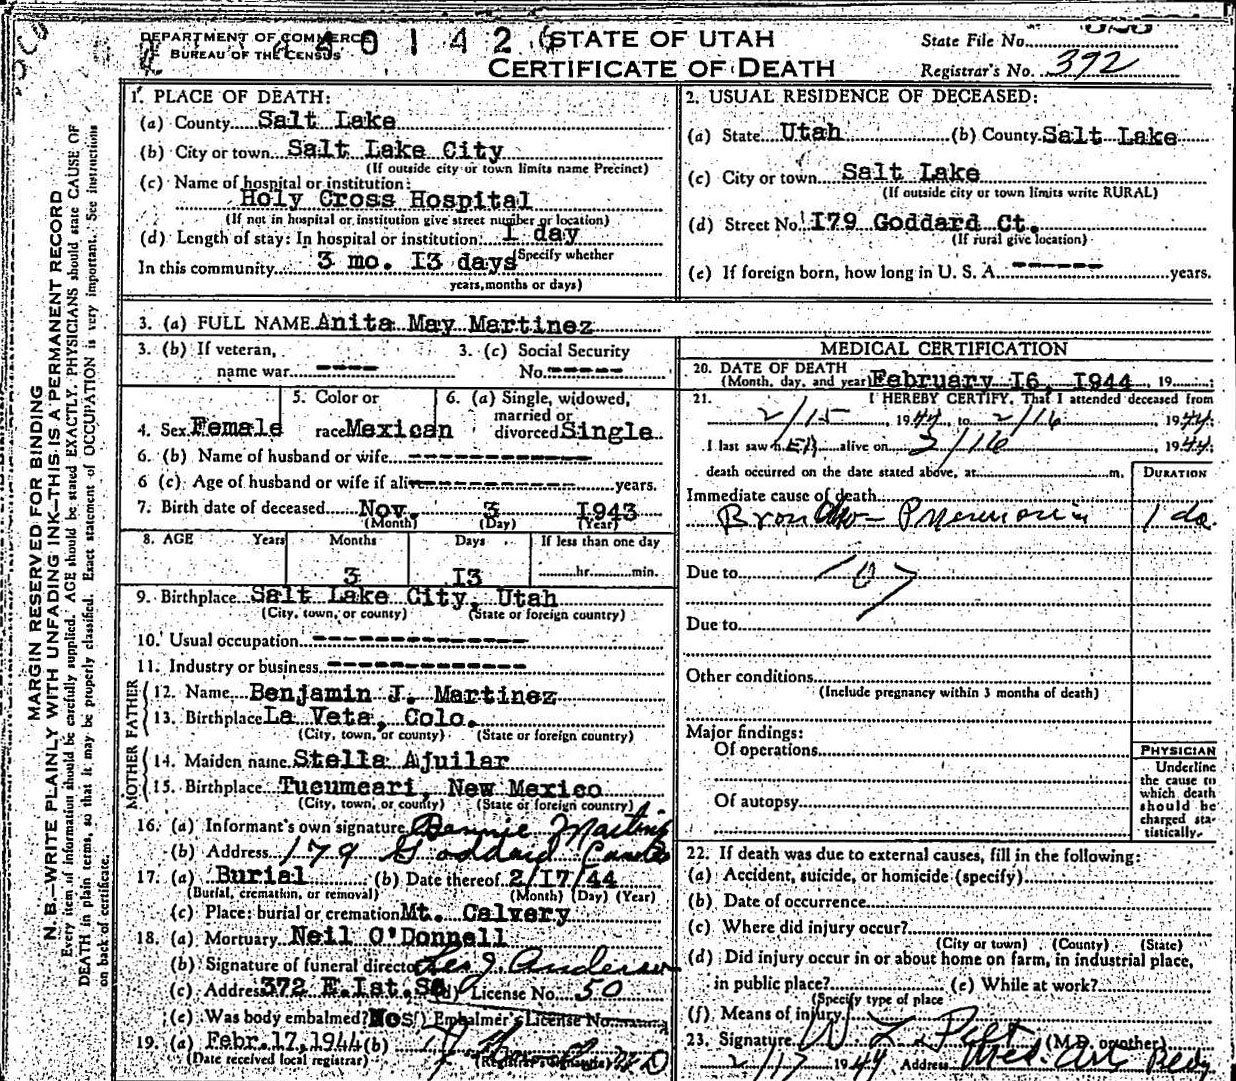 DEPARTMENT OF COMMERCE
BUREAU OF THE CENSUS
40142
STATE OF UTAH
CERTIFICATE OF DEATH
State File No.
Registrar's No. 392
MARGIN RESERVED FOR BINDING
N. B.—WRITE PLAINLY WITH UNFADING INK—THIS IS A PERMANENT RECORD
Every item of information should be carefully supplied. AGE should be stated EXACTLY. PHYSICIANS should state CAUSE OF
DEATH in plain terms, so that it may be properly classified. Exact statement of OCCUPATION is very important. See instructions
on back of certificate.
1. PLACE OF DEATH:
(a) County Salt Lake
(b) City or town Salt Lake City
(If outside city or town limits name Precinct)
(c) Name of hospital or institution:
Holy Cross Hospital
(If not in hospital or institution give street number or location)
(d) Length of stay: In hospital or institution: 1 day
(Specify whether
In this community 3 mo. I3 days
years, months or days)
2. USUAL RESIDENCE OF DECEASED:
(a) State Utah (b) County Salt Lake
(c) City or town Salt Lake
(If outside city or town limits write RURAL)
(d) Street No. I79 Goddard Ct.
(If rural give location)
(e) If foreign born, how long in U. S. A. ------ years.
3. (a) FULL NAME Anita May Martinez
3. (b) If veteran,
name war ----
3. (c) Social Security
No. -----
4. Sex Female
5. Color or
race Mexican
6. (a) Single, widowed,
married or
divorced Single
6. (b) Name of husband or wife
6 (c) Age of husband or wife if alive years.
7. Birth date of deceased Nov. 3 I943
(Month) (Day) (Year)
8. AGE Years Months Days If less than one day
3 I3 hr. min.
9. Birthplace Salt Lake City, Utah
(City, town, or county) (State or foreign country)
10. Usual occupation
11. Industry or business
FATHER
12. Name Benjamin J. Martinez
13. Birthplace La Veta, Colo.
(City, town, or county) (State or foreign country)
MOTHER
14. Maiden name Stella Ajuilar
15. Birthplace Tucumcari, New Mexico
(City, town, or county) (State or foreign country)
16. (a) Informant's own signature Bennie Martinez
(b) Address 179 Goddard
17. (a) Burial (b) Date thereof 2/I7/44
(Burial, cremation, or removal) (Month) (Day) (Year)
(c) Place: burial or cremation Mt. Calvery
18. (a) Mortuary Neil O'Donnell
(b) Signature of funeral director Les J. Anderson
(c) Address 372 E.Ist.So (d) License No. 50
(e) Was body embalmed? (f) Embalmer's License No.
19. (a) Febr. 17, 1944 (b)
(Date received local registrar) (Registrar's signature) M D
MEDICAL CERTIFICATION
20. DATE OF DEATH
(Month, day, and year) February I6, I944, 19
21. I HEREBY CERTIFY, That I attended deceased from
2/15, 1944, to 2/16, 1944
I last saw her alive on 2/16, 1944
death occurred on the date stated above, at m.
DURATION
Immediate cause of death
Broncho-Pneumonia 1 da.
Due to
Due to
Other conditions
(Include pregnancy within 3 months of death)
Major findings:
Of operations
Of autopsy
PHYSICIAN
Underline
the cause to
which death
should be
charged sta-
tistically.
22. If death was due to external causes, fill in the following:
(a) Accident, suicide, or homicide (specify)
(b) Date of occurrence
(c) Where did injury occur?
(City or town) (County) (State)
(d) Did injury occur in or about home on farm, in industrial place,
in public place? (e) While at work?
(Specify type of place
(f) Means of injury
23. Signature W L Pelt (M.D. or other)
2/17 1944 Address Med. Art Bldg